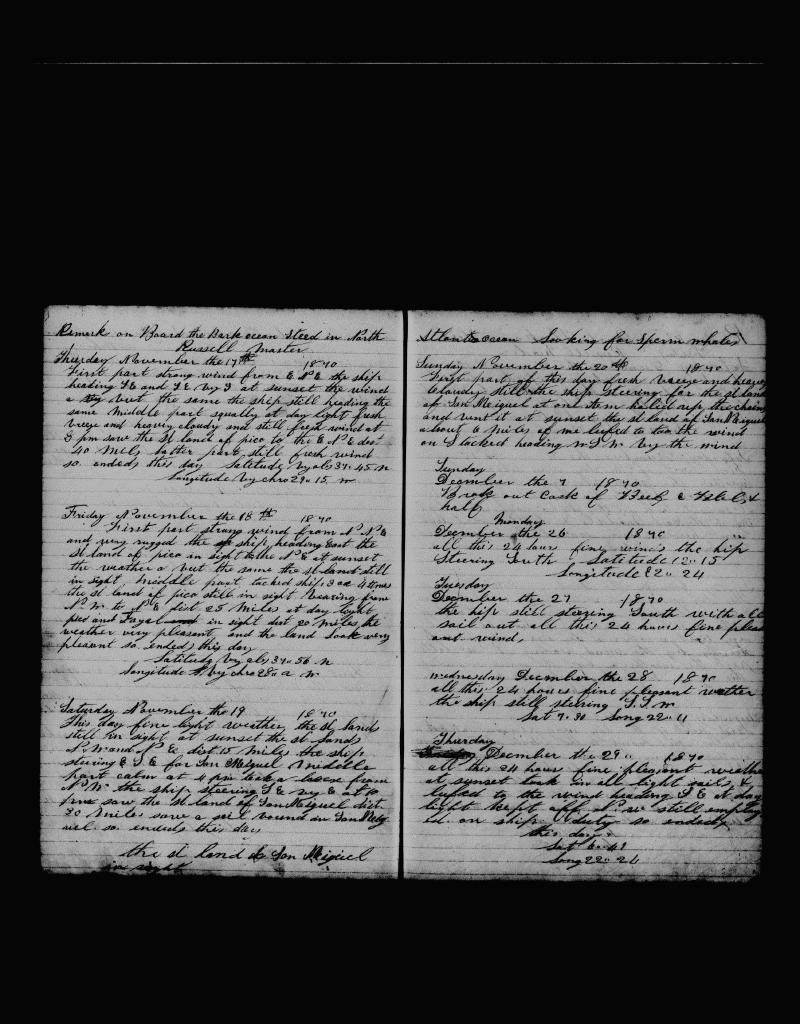 Remark on Board the Bark ocean Steed in North
Russell Master
Thursday November the 17th 1870
First part strong wind from E N E the ship
heading S E and S E by S at sunset the wind
a but the same the ship still heading the
same Middle part squally at day light fresh
breeze and heaviy cloudy and still fresh wind at
3 pm saw the st land of pico to the E N E dist
40 Mels latter part still fresh wind
so ended this day Latitude by obs 37.. 45 N
Longitude by chro 29.. 15 w
Friday November the 18th 1870
First part strong wind from N N E
and very rugged the ship heading East the
st land of pico in sight to the N E at sunset
the weather a but the same the st land still
in sight Middle part tacked ship 3 or 4 times
the st land of pico still in sight bearing from
N. W. to N E dist 25 Miles at day light
pico and Fayal in sight dist 20 Miles the
weather very pleasent and the land look very
pleasent so ended this day
Latitude by obs 37.. 56 N
Longitude by chro 28.. 2 W
Saturday November the 19 1870
This day fine light weather the st lands
still in sight at sunset the st lands
N. W and N E dist 15 Miles the ship
steering E S E for San Meguel Middle
part calm at 4 pm took a breese from
N. W. the ship steering S E by E at 10
saw the st land of San Meguel dist
30 Miles saw a sail bound in San Meg
uel so ended this day
the st land of San Miguel
in sight
Atlantic ocean Looking for Sperm whales
Sunday November the 20th 1870
First part of this day fresh breeze and heavy
Cloudy still the ship steering for the st land
of San Meiguel at one item haled up the chains
and bent it at sunset the st land of San Meiguel
about 6 Miles of me lufed to too the wind
on S tacked heading W S W by the wind
Sunday
Decmber the 4 1870
Brok out Cask of Beef &
half
Monday
Decmber the 26 1870
all this 24 hours fine winds the hip
Steering South Latitude 12.. 15
Longitude 22.. 24
Tuesday
Decmber the 27 1870
the hip still steering South with all
sail out all this 24 hours fine pleas
ant wind,
wednesday Decmber the 28 1870
all this 24 hours fine pleasent wether
the ship still sterring S. S. W
Lat 9.. 30 Long 22.. 11
Thursday
Decmber the 29.. 1870
all this 24 hours fine pleasent weathe
at sunset took in all light sails &
lufed to the wind heading S E at day
light kept off N. W still employ
ed on ship duty so ended
this day
Lat 6.. 41
Long 22.. 26